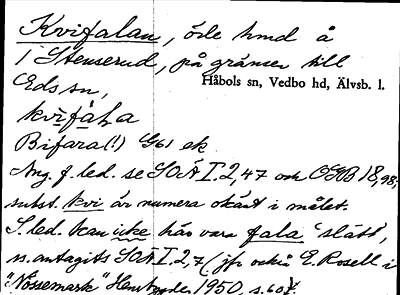 Kvifalan, öde hmd å
1 Stenserud, på gränsen till
Håbols sn, Vedbo hd, Älvsb. l.
Eds sn,
kvifàLa
Bifara(!) G61 ek
Ang. f. led. se SOÄ I.2,47 och OGB 18,98;
subst. kvi är numera okänt i målet.
S. led. kan icke här vara fala 'slätt',
ss. antagits SOÄ I.2,7 (jfr också E. Rosell i
"Nössemark" Hembygden 1950, s. 60).